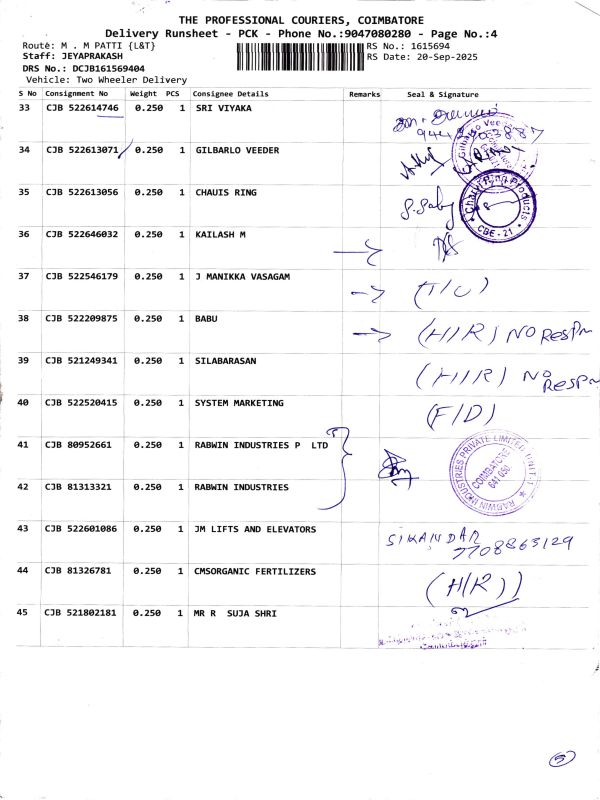 THE PROFESSIONAL COURIERS, COIMBATORE
Delivery Runsheet - PCK - Phone No.:9047080280 - Page No.:4
Route: M . M PATTI {L&T} RS No.: 1615694
Staff: JEYAPRAKASH RS Date: 20-Sep-2025
DRS No.: DCJB161569404
Vehicle: Two Wheeler Delivery
S No Consignment No Weight PCS Consignee Details Remarks Seal & Signature
33 CJB 522614746 0.250 1 SRI VIYAKA
34 CJB 522613071 0.250 1 GILBARLO VEEDER
35 CJB 522613056 0.250 1 CHAUIS RING CBE - 21
36 CJB 522646032 0.250 1 KAILASH M
37 CJB 522546179 0.250 1 J MANIKKA VASAGAM
38 CJB 522209875 0.250 1 BABU (H/R) NO RESPN
39 CJB 521249341 0.250 1 SILABARASAN (H/R) NO RESPN
40 CJB 522520415 0.250 1 SYSTEM MARKETING (F/D)
41 CJB 80952661 0.250 1 RABWIN INDUSTRIES P LTD
42 CJB 81313321 0.250 1 RABWIN INDUSTRIES RABWIN INDUSTRIES PRIVATE LIMITED COIMBATORE 641 050
43 CJB 522601086 0.250 1 JM LIFTS AND ELEVATORS SIKANDAR
7708863129
44 CJB 81326781 0.250 1 CMSORGANIC FERTILIZERS (H/R)
45 CJB 521802181 0.250 1 MR R SUJA SHRI
5